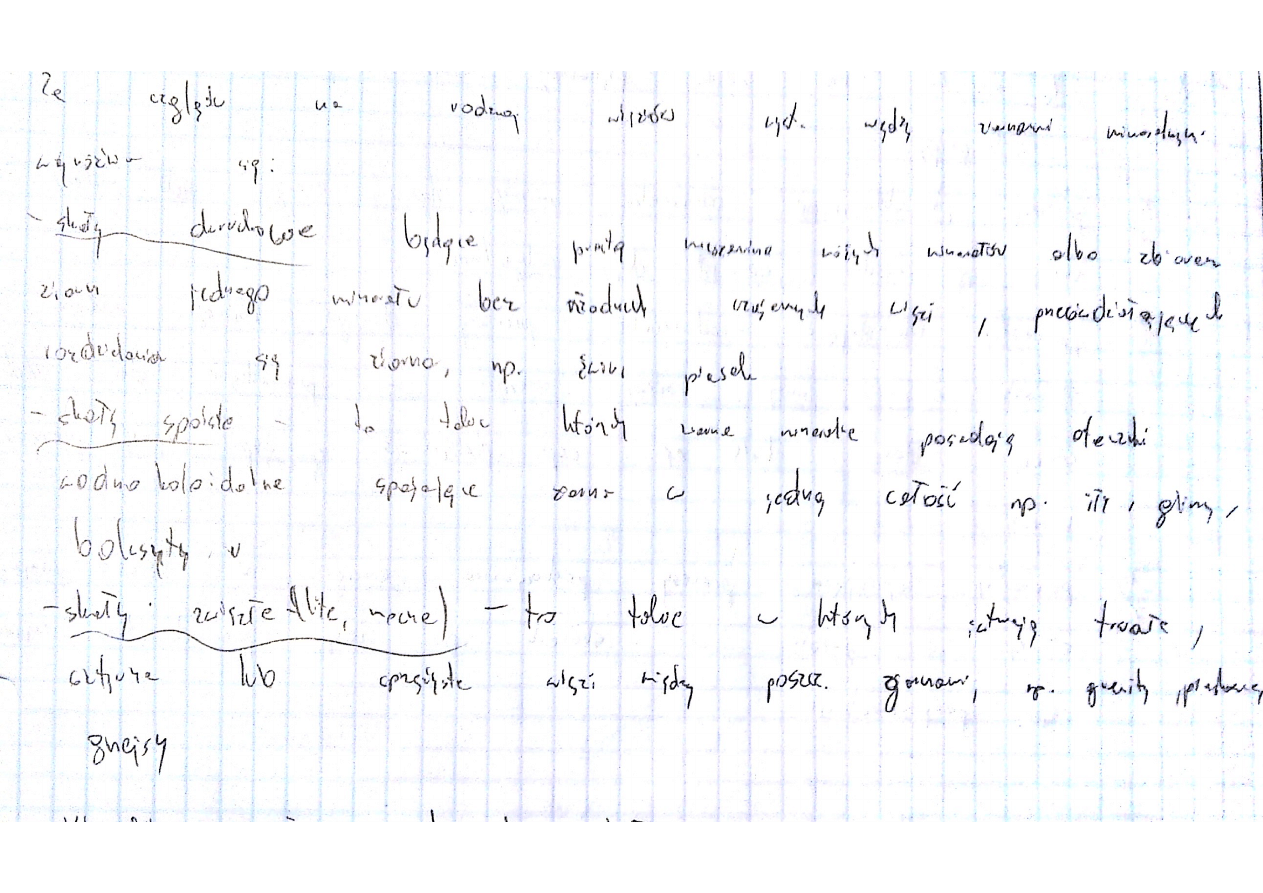 Ze względu na rodzaj więzów wyst. między ziarnami
wyróżnia się:
- skały okruchowe będące mieszaniną różnych minerałów albo zbiorem
ziarn jednego minerału bez żadnych więzi, przeciwdziałających
się ziarna, np. żwir, piasek
- skały spoiste - to takie których ziarna mineralne posiadają otoczki
wodno koloidalne spajające ziarna w jedną całość np. iły, gliny,
boksyty
- skały zwięzłe (lite, mocne) - to takie w których istnieją trwałe,
sztywne lub sprężyste więzi między poszcz. ziarnami, np. granity, piaskowce,
gnejsy